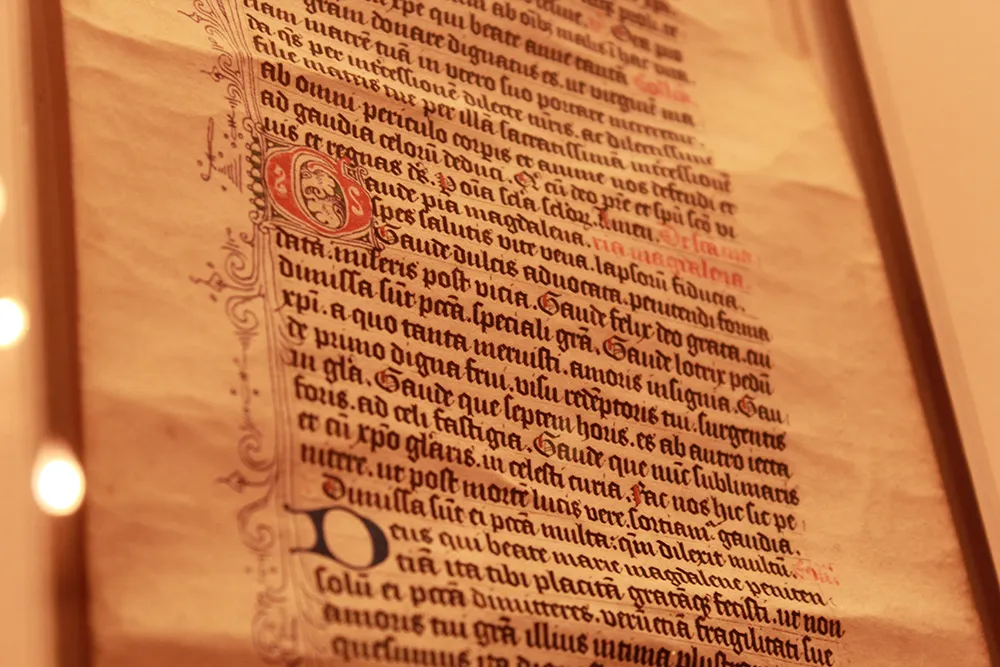 ab oībꝫ malis ⁊ hac
xpe qui beate anne tantā
gram donare dignatus es. ut virginē ma
riam matrē tuā in utero suo portare mereretur
da q̄s per intercessionē dilecte mris. ac dilectissime
filie matris tue per illā sacratissimā intercessionē
ab omni periculo corpis et anime nos defendi et
ad gaudia celorū deduci. Q cū deo pr̄e et spū scō vi
uis et regnas ds̄. P oīa scl̄a scl̄oꝝ. Amen. De sancta ma
Gaude pia magdalena. ria magdalena.
spes salutis vite vena. lapsorū fiducia.
Gaude dulcis advocata. penitendi forma
data. miseris post vicia. Gaude felix deo grata. cui
dimissa sūt pcc̄ā. speciali grā. Gaude lotrix pedū
xpī. a quo tanta meruisti. amoris insignia. Gau
de primo digna frui. visu redēptoris tui. surgentis
in gl̄a. Gaude que septem horis. es ab antro iecta
foris. ad celi fastigia. Gaude que nūc sublimaris
et cū xpō gl̄aris. in celesti curia. Fac nos hic sic pe
nitere. ut post mortē lucis vere. sortiam̄ gaudia.
Dimissa sūt ei pcc̄ā multa: qm̄ dilexit multū.
Deus qui beate marie magdalene peniten
ciā ita tibi placitā gratāqꝫ fecisti. ut non
solū ei pcc̄ā dimitteres. verūetiā fragilitati sue
amoris tui grā illius intima
quesumus ita